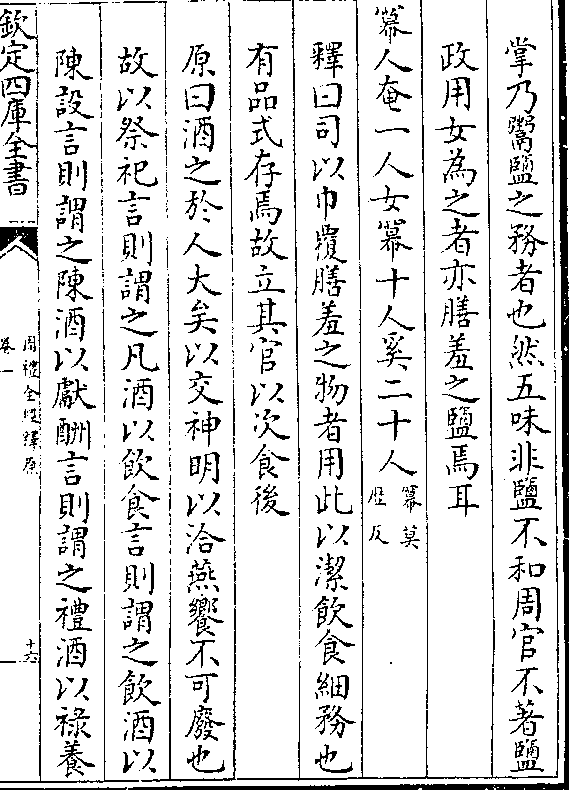 掌乃鬻鹽之務者也然五味非鹽不和周官不著鹽
政用女為之者亦膳羞之鹽焉耳
冪人奄一人女冪十人奚二十人冪莫
歴反
釋曰司以巾覆膳羞之物者用此以潔飲食細務也
有品式存焉故立其官以次食後
原曰酒之於人大矣以交神明以洽燕饗不可廢也
故以祭祀言則謂之凡酒以飲食言則謂之飲酒以
陳設言則謂之陳酒以獻酬言則謂之禮酒以祿養
欽定四庫全書
周禮全經釋原
卷一
十六